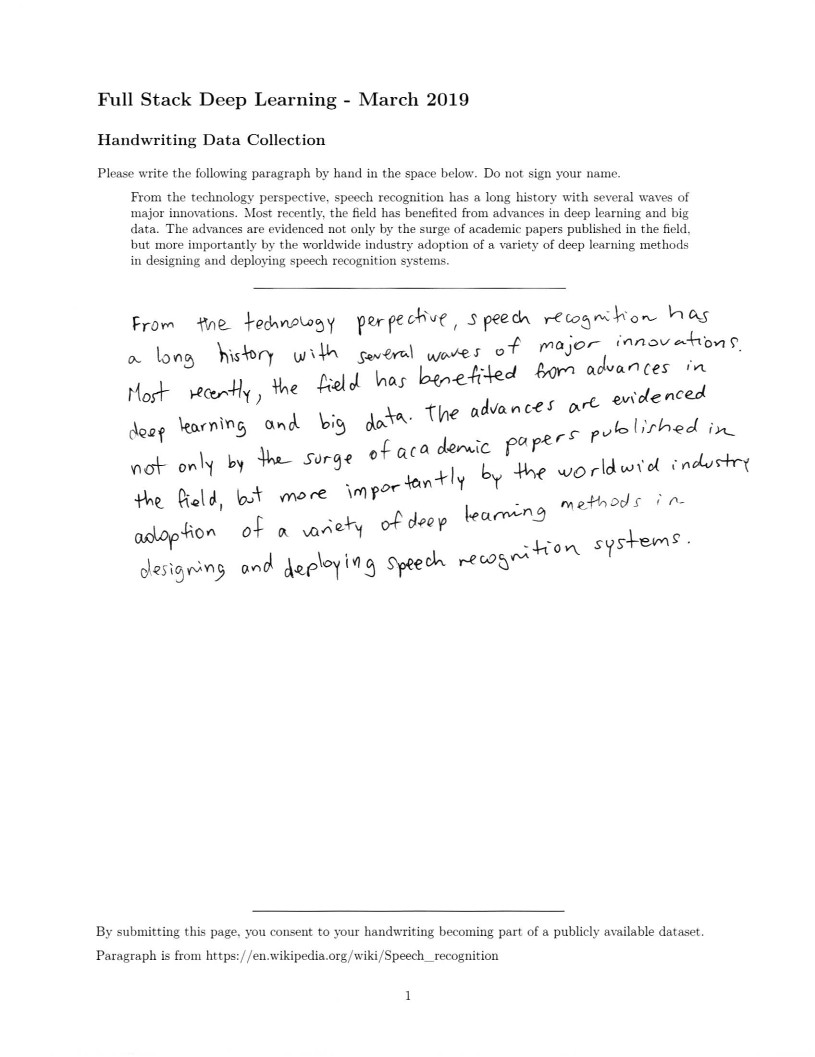 Full Stack Deep Learning - March 2019
Handwriting Data Collection
Please write the following paragraph by hand in the space below. Do not sign your name.
From the technology perspective, speech recognition has a long history with several waves of
major innovations. Most recently, the field has benefited from advances in deep learning and big
data. The advances are evidenced not only by the surge of academic papers published in the field,
but more importantly by the worldwide industry adoption of a variety of deep learning methods
in designing and deploying speech recognition systems.
From the technology perpective, speech recognition has
a long history with several waves of major innovations.
Most recently, the field has benefited from advances in
deep learning and big data. The advances are evidenced
not only by the surge of academic papers published in
the field, but more importantly by the worldwid industry
adoption of a variety of deep learning methods in
designing and deploying speech recognition systems.
By submitting this page, you consent to your handwriting becoming part of a publicly available dataset.
Paragraph is from https://en.wikipedia.org/wiki/Speech_recognition
1